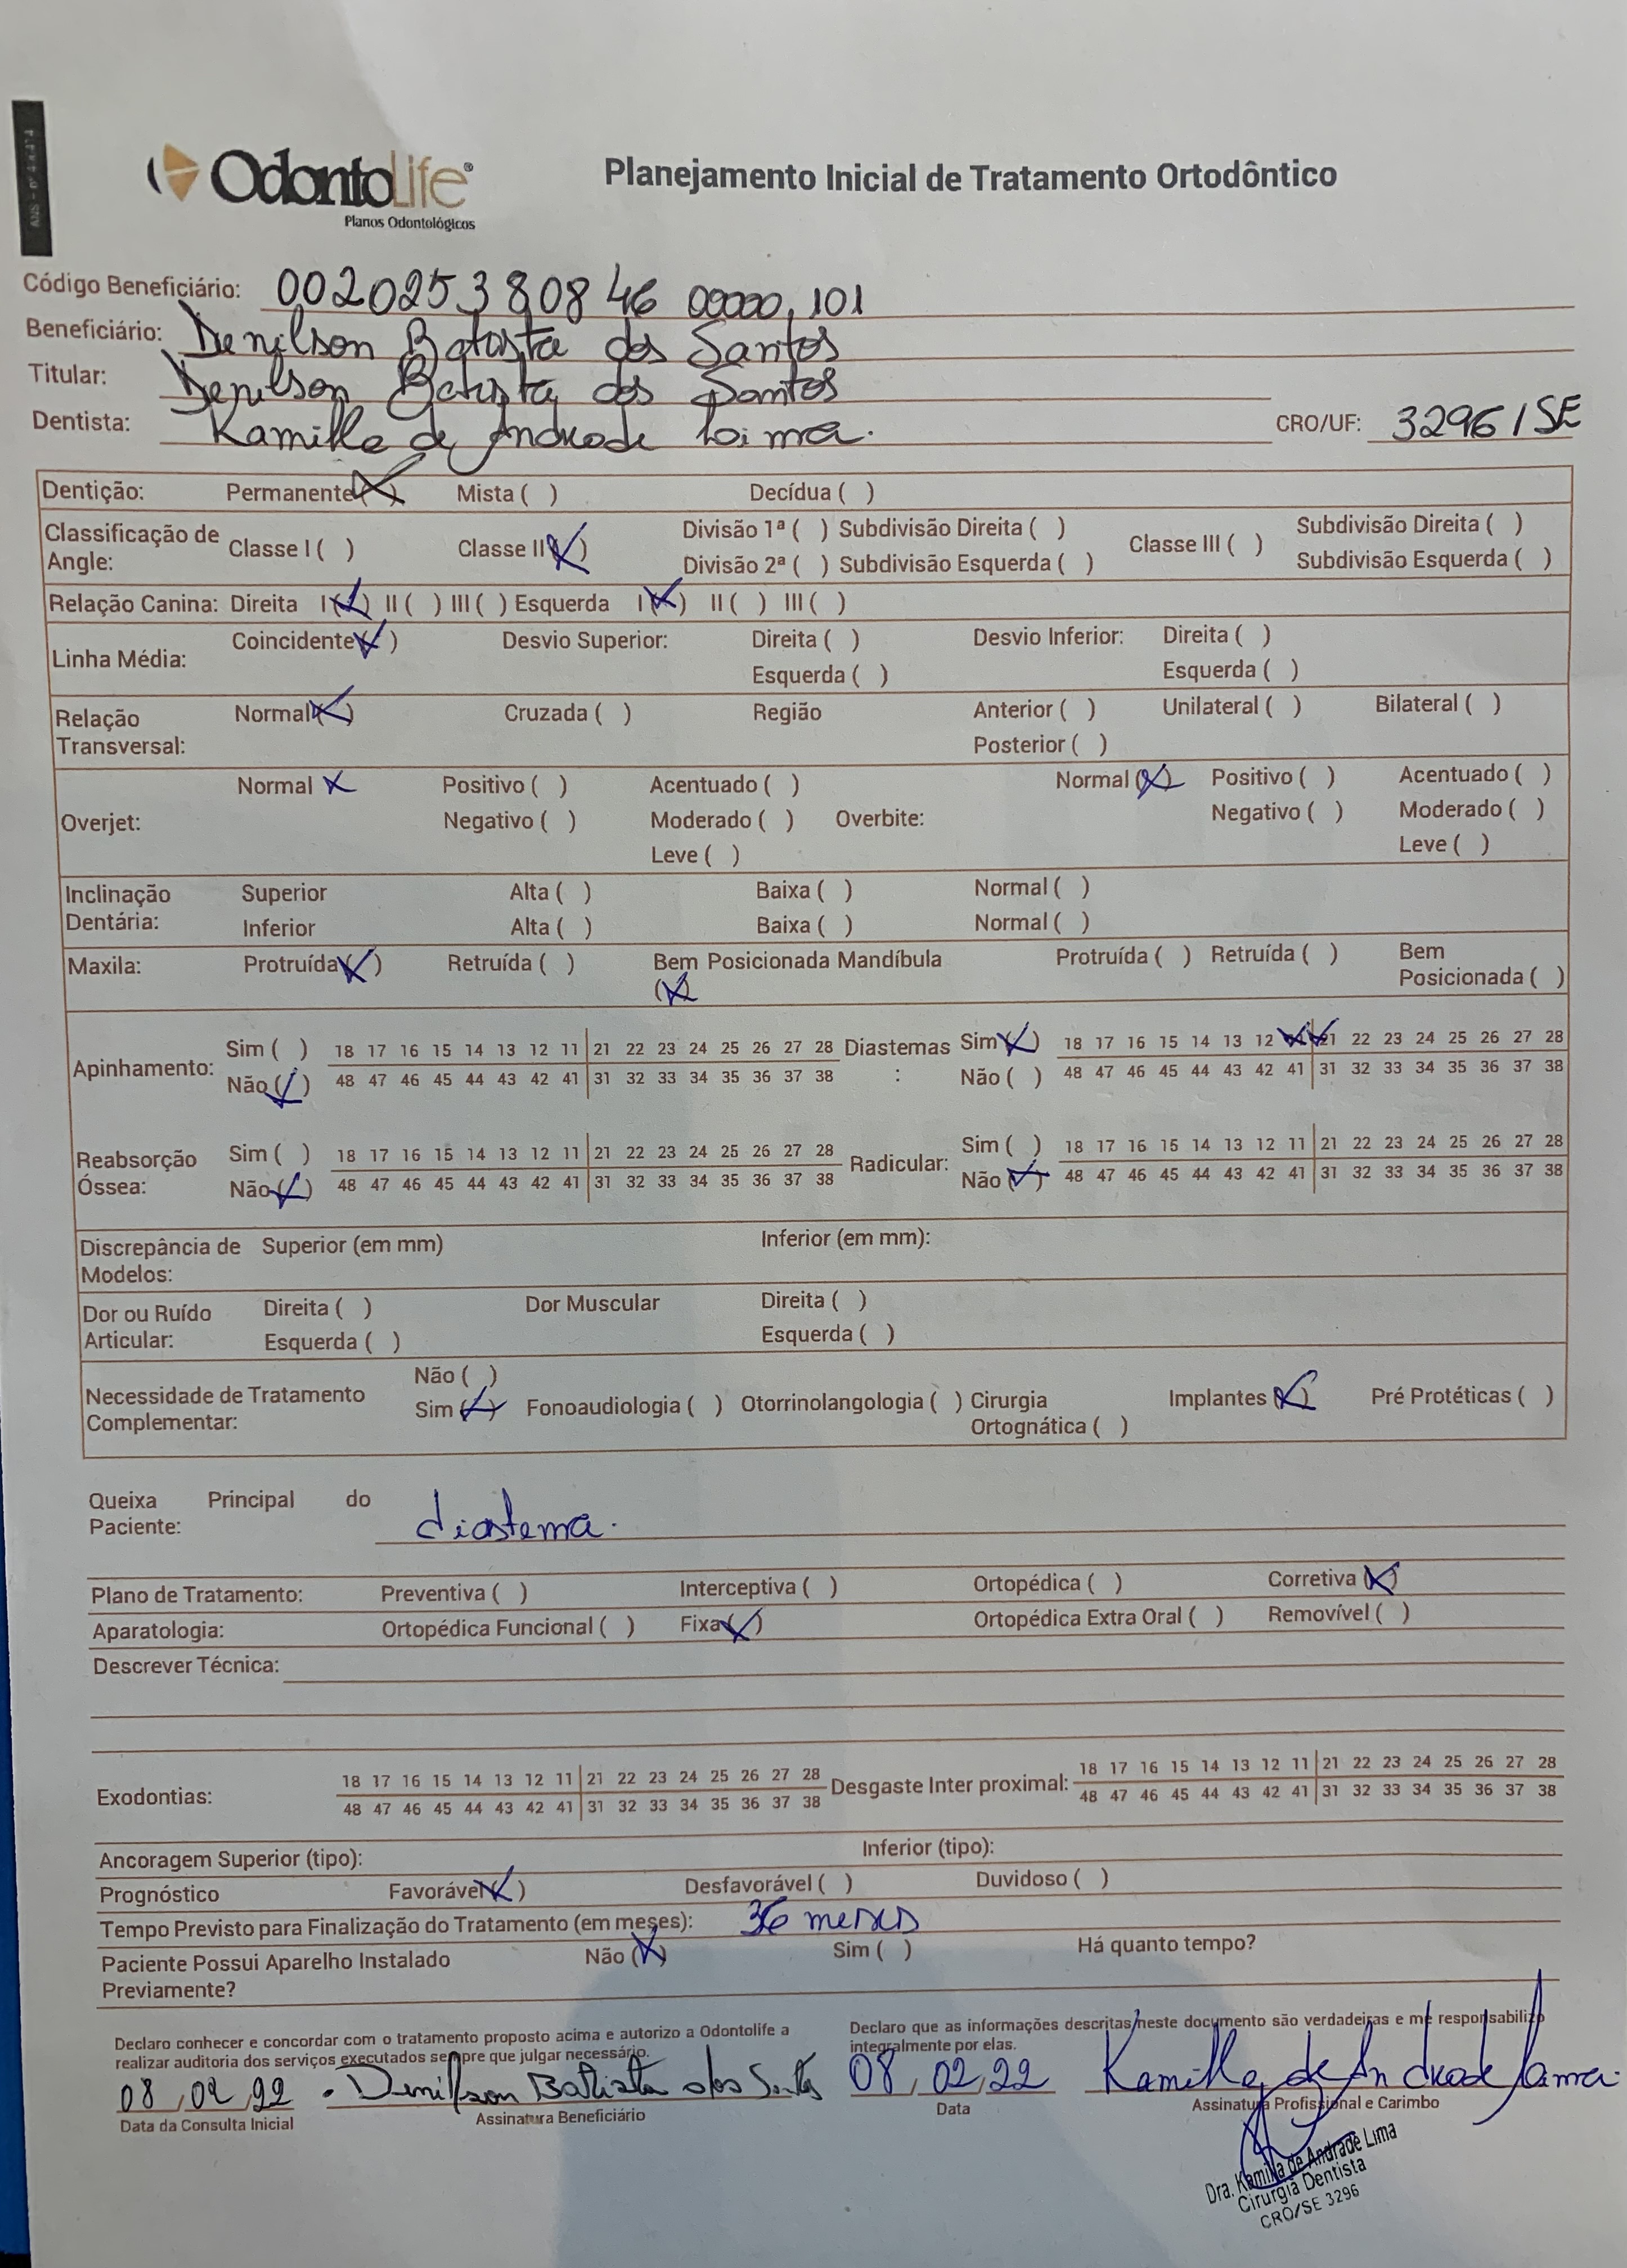 OdontoLife®
Planos Odontológicos
Planejamento Inicial de Tratamento Ortodôntico
Código Beneficiário: 0020253808 46 00000, 101
Beneficiário: Denilson Batista dos Santos
Titular: Denilson Batista dos Santos
Dentista: Kamilla de Andrade Lima. CRO/UF: 3296 / SE
Dentição: Permanente (X) Mista ( ) Decídua ( )
Classificação de Angle: Classe I ( ) Classe II (X) Divisão 1ª ( ) Subdivisão Direita ( ) Classe III ( ) Subdivisão Direita ( )
Divisão 2ª ( ) Subdivisão Esquerda ( ) Subdivisão Esquerda ( )
Relação Canina: Direita I (X) II ( ) III ( ) Esquerda I (X) II ( ) III ( )
Linha Média: Coincidente (X) Desvio Superior: Direita ( ) Desvio Inferior: Direita ( )
Esquerda ( ) Esquerda ( )
Relação Transversal: Normal (X) Cruzada ( ) Região Anterior ( ) Unilateral ( ) Bilateral ( )
Posterior ( )
Overjet: Normal X Positivo ( ) Acentuado ( ) Overbite: Normal (X) Positivo ( ) Acentuado ( )
Negativo ( ) Moderado ( ) Negativo ( ) Moderado ( )
Leve ( ) Leve ( )
Inclinação Dentária: Superior Alta ( ) Baixa ( ) Normal ( )
Inferior Alta ( ) Baixa ( ) Normal ( )
Maxila: Protruída (X) Retruída ( ) Bem Posicionada (X) Mandíbula Protruída ( ) Retruída ( ) Bem Posicionada ( )
Apinhamento: Sim ( ) 18 17 16 15 14 13 12 11 21 22 23 24 25 26 27 28 Diastemas: Sim (X) 18 17 16 15 14 13 12 11 21 22 23 24 25 26 27 28
Não (X) 48 47 46 45 44 43 42 41 31 32 33 34 35 36 37 38 Não ( ) 48 47 46 45 44 43 42 41 31 32 33 34 35 36 37 38
Reabsorção Óssea: Sim ( ) 18 17 16 15 14 13 12 11 21 22 23 24 25 26 27 28 Radicular: Sim ( ) 18 17 16 15 14 13 12 11 21 22 23 24 25 26 27 28
Não (X) 48 47 46 45 44 43 42 41 31 32 33 34 35 36 37 38 Não (X) 48 47 46 45 44 43 42 41 31 32 33 34 35 36 37 38
Discrepância de Modelos: Superior (em mm) Inferior (em mm):
Dor ou Ruído Articular: Direita ( ) Dor Muscular Direita ( )
Esquerda ( ) Esquerda ( )
Necessidade de Tratamento Complementar: Não ( )
Sim (X) Fonoaudiologia ( ) Otorrinolangologia ( ) Cirurgia Ortognática ( ) Implantes (X) Pré Protéticas ( )
Queixa Principal do Paciente: diastema.
Plano de Tratamento: Preventiva ( ) Interceptiva ( ) Ortopédica ( ) Corretiva (X)
Aparatologia: Ortopédica Funcional ( ) Fixa (X) Ortopédica Extra Oral ( ) Removível ( )
Descrever Técnica:
Exodontias: 18 17 16 15 14 13 12 11 21 22 23 24 25 26 27 28 Desgaste Inter proximal: 18 17 16 15 14 13 12 11 21 22 23 24 25 26 27 28
48 47 46 45 44 43 42 41 31 32 33 34 35 36 37 38 48 47 46 45 44 43 42 41 31 32 33 34 35 36 37 38
Ancoragem Superior (tipo): Inferior (tipo):
Prognóstico Favorável (X) Desfavorável ( ) Duvidoso ( )
Tempo Previsto para Finalização do Tratamento (em meses): 36 meses
Paciente Possui Aparelho Instalado Previamente? Não (X) Sim ( ) Há quanto tempo?
Declaro conhecer e concordar com o tratamento proposto acima e autorizo a Odontolife a
realizar auditoria dos serviços executados sempre que julgar necessário.
Declaro que as informações descritas neste documento são verdadeiras e me responsabilizo
integralmente por elas.
08,02,22 Denilson Battista dos Santos 08,02,22 Kamilla de Andrade Lima.
Data da Consulta Inicial Assinatura Beneficiário Data Assinatura Profissional e Carimbo
Dra. Kamilla de Andrade Lima
Cirurgiã Dentista
CRO/SE 3296